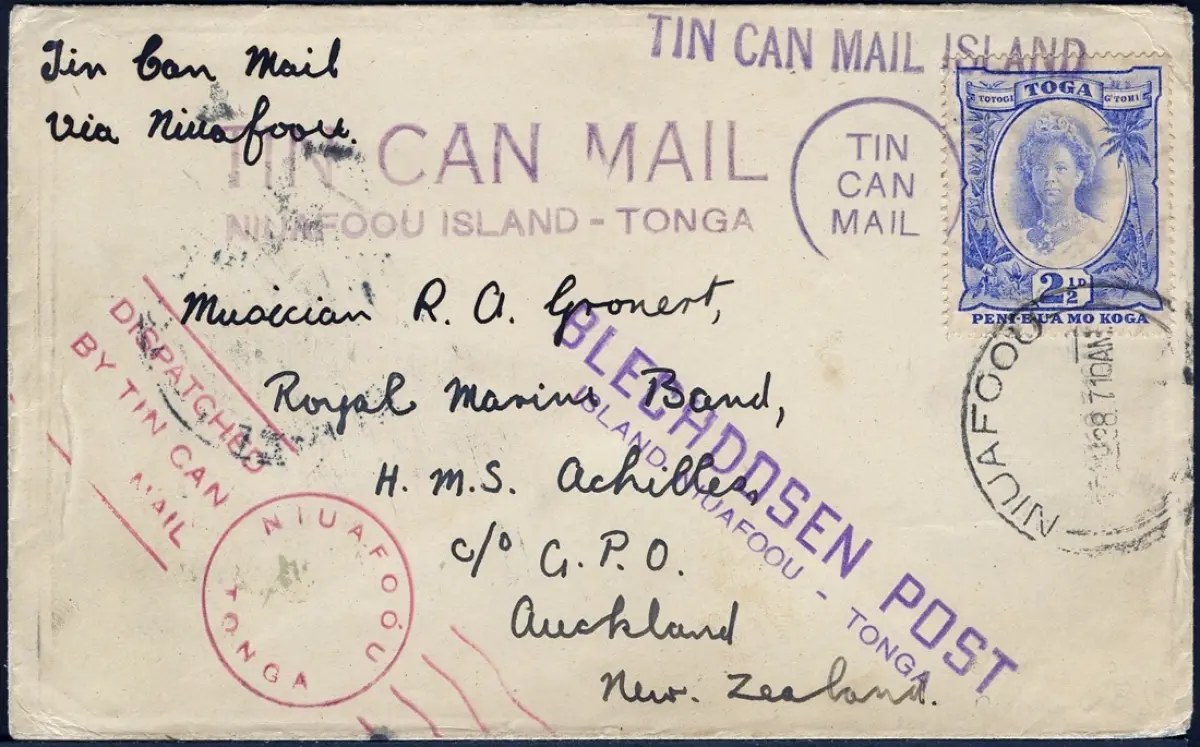 TIN CAN MAIL ISLAND
Tin Can Mail
via Niuafoou.
TIN CAN MAIL
NIUAFOOU ISLAND - TONGA
TIN
CAN
MAIL
TOGA
TOTOGI
G'TOHI
2½D
PENI E UA MO KOGA
NIUAFOOU
Musician R. A. Gronert,
Royal Marine Band,
H. M. S. Achilles,
c/o G. P. O.
Auckland
New. Zealand.
DISPATCHED
BY TIN CAN
MAIL
NIUAFOOU
TONGA
BLECHDOSEN POST
ISLAND NIUAFOOU - TONGA